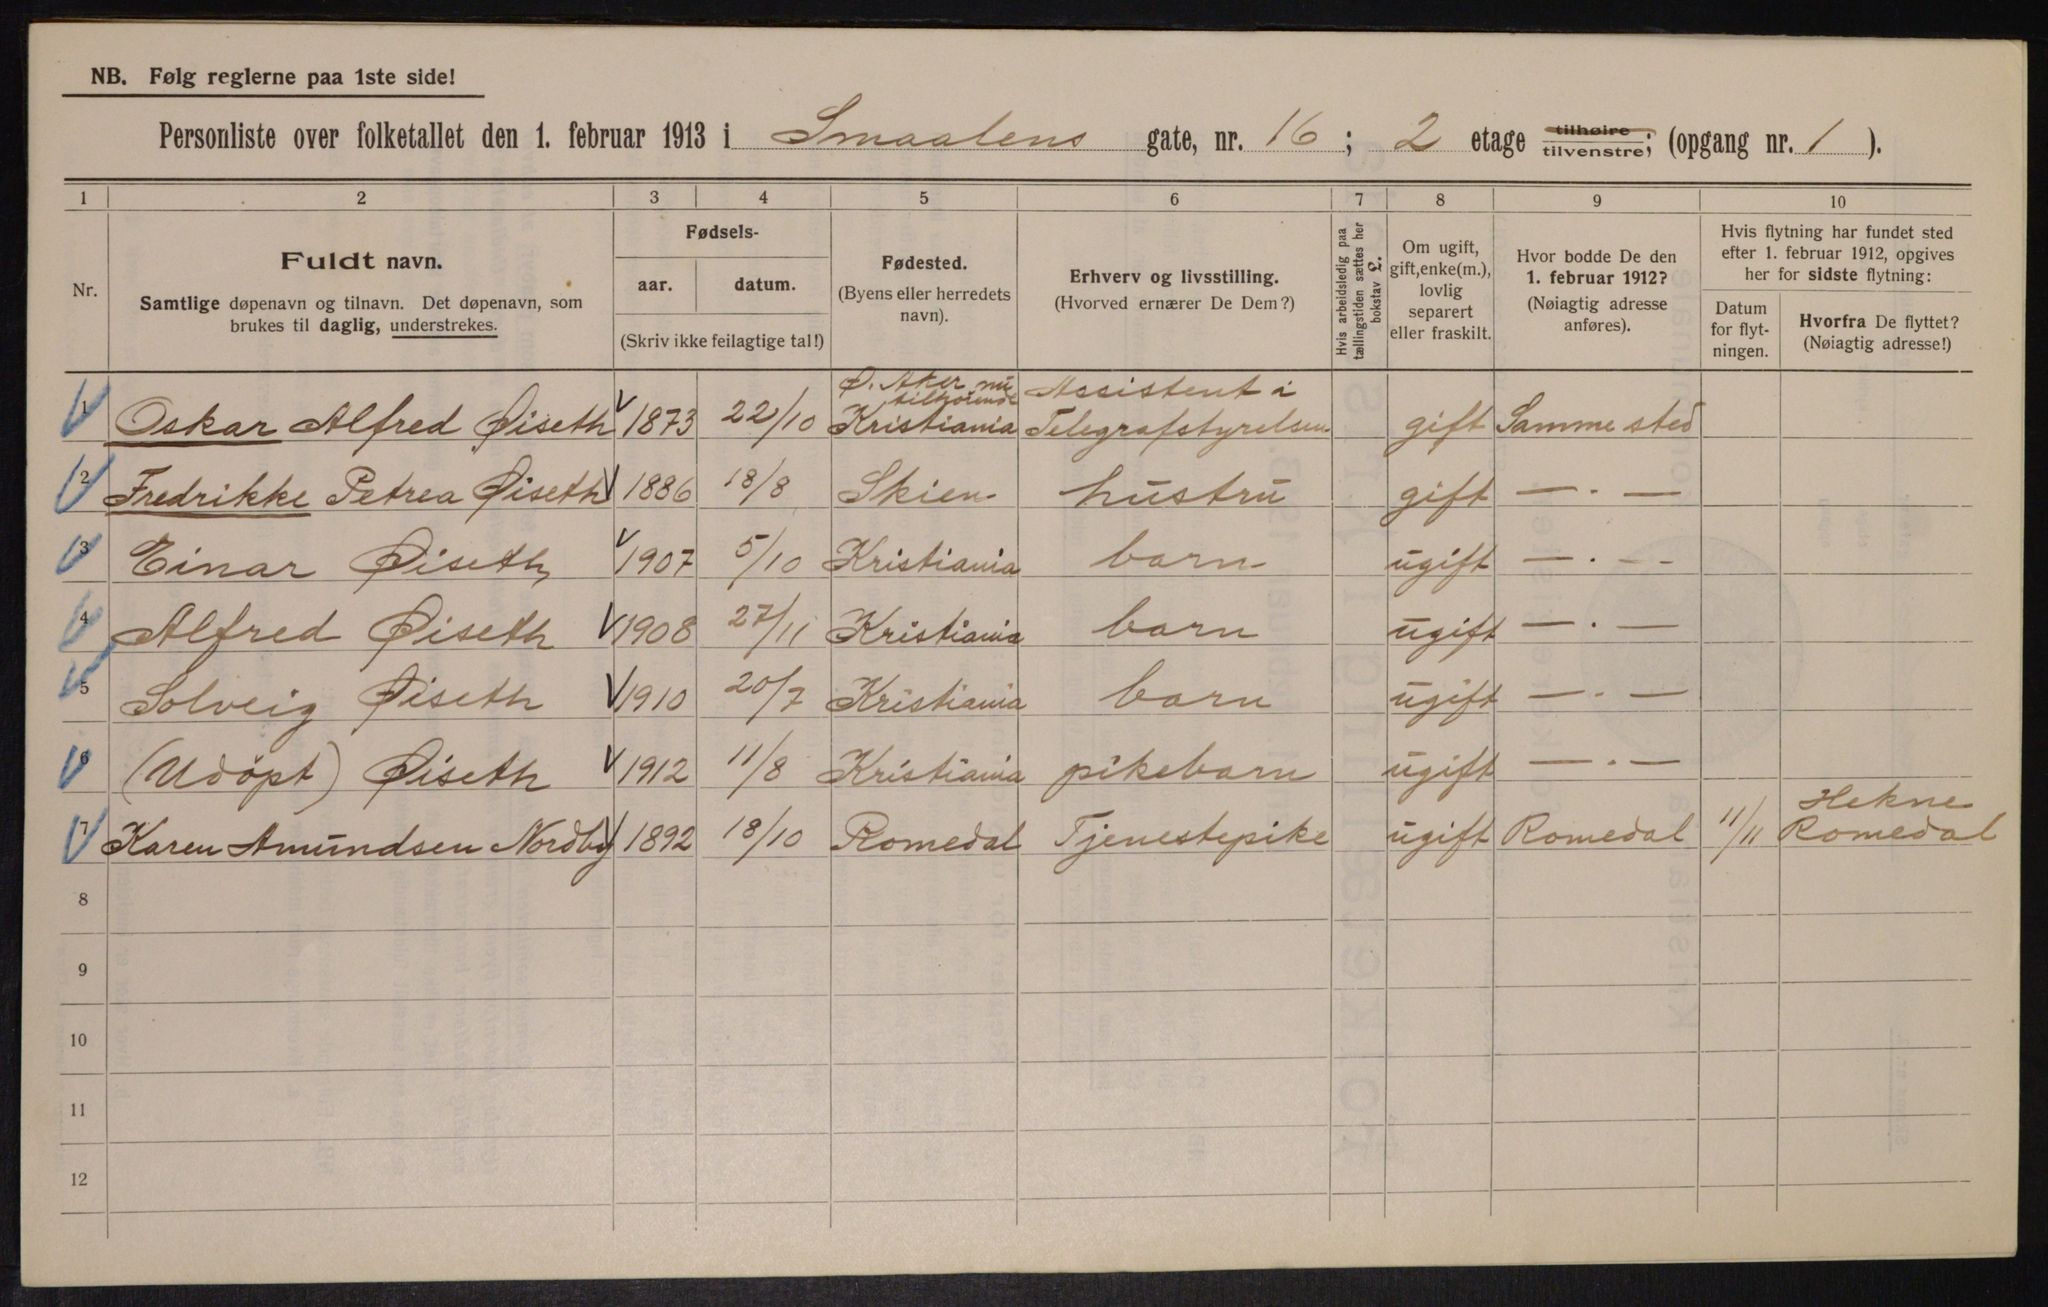 NB. Følg reglerne paa 1ste side!
Personliste over folketallet den 1. februar 1913 i Smaalens gate, nr. 16; 2 etage tilhøire tilvenstre; (opgang nr. 1).
1 2 3 4 5 6 7 8 9 10
Nr.
Fuldt navn.
Samtlige døpenavn og tilnavn. Det døpenavn, som
brukes til daglig, understrekes.
Fødsels-
aar. datum.
(Skriv ikke feilagtige tal!)
Fødested.
(Byens eller herredets
navn).
Erhverv og livsstilling.
(Hvorved ernærer De Dem?)
Hvis arbeidsledig paa
tællingstiden sættes her
bokstav l.
Om ugift,
gift, enke(m.),
lovlig
separert
eller fraskilt.
Hvor bodde De den
1. februar 1912?
(Nøiagtig adresse
anføres).
Hvis flytning har fundet sted
efter 1. februar 1912, opgives
her for sidste flytning:
Datum
for flyt-
ningen.
Hvorfra De flyttet?
(Nøiagtig adresse!)
Ø. Aker nu tilhörende Assistent i
1 Oskar Alfred Øiseth 1873 22/10 Kristiania Telegrafstyrelsen gift Samme sted
2 Fredrikke Petrea Øiseth 1886 18/8 Skien hustru gift — . —
3 Einar Øiseth 1907 5/10 Kristiania barn ugift — . —
4 Alfred Øiseth 1908 27/11 Kristiania barn ugift — . —
5 Solveig Øiseth 1910 20/7 Kristiania barn ugift — . —
6 (Udöpt) Øiseth 1912 11/8 Kristiania pikebarn ugift — . —
Hekne
7 Karen Amundsen Nordby 1892 18/10 Romedal Tjenestepike ugift Romedal 11/11 Romedal
8
9
10
11
12